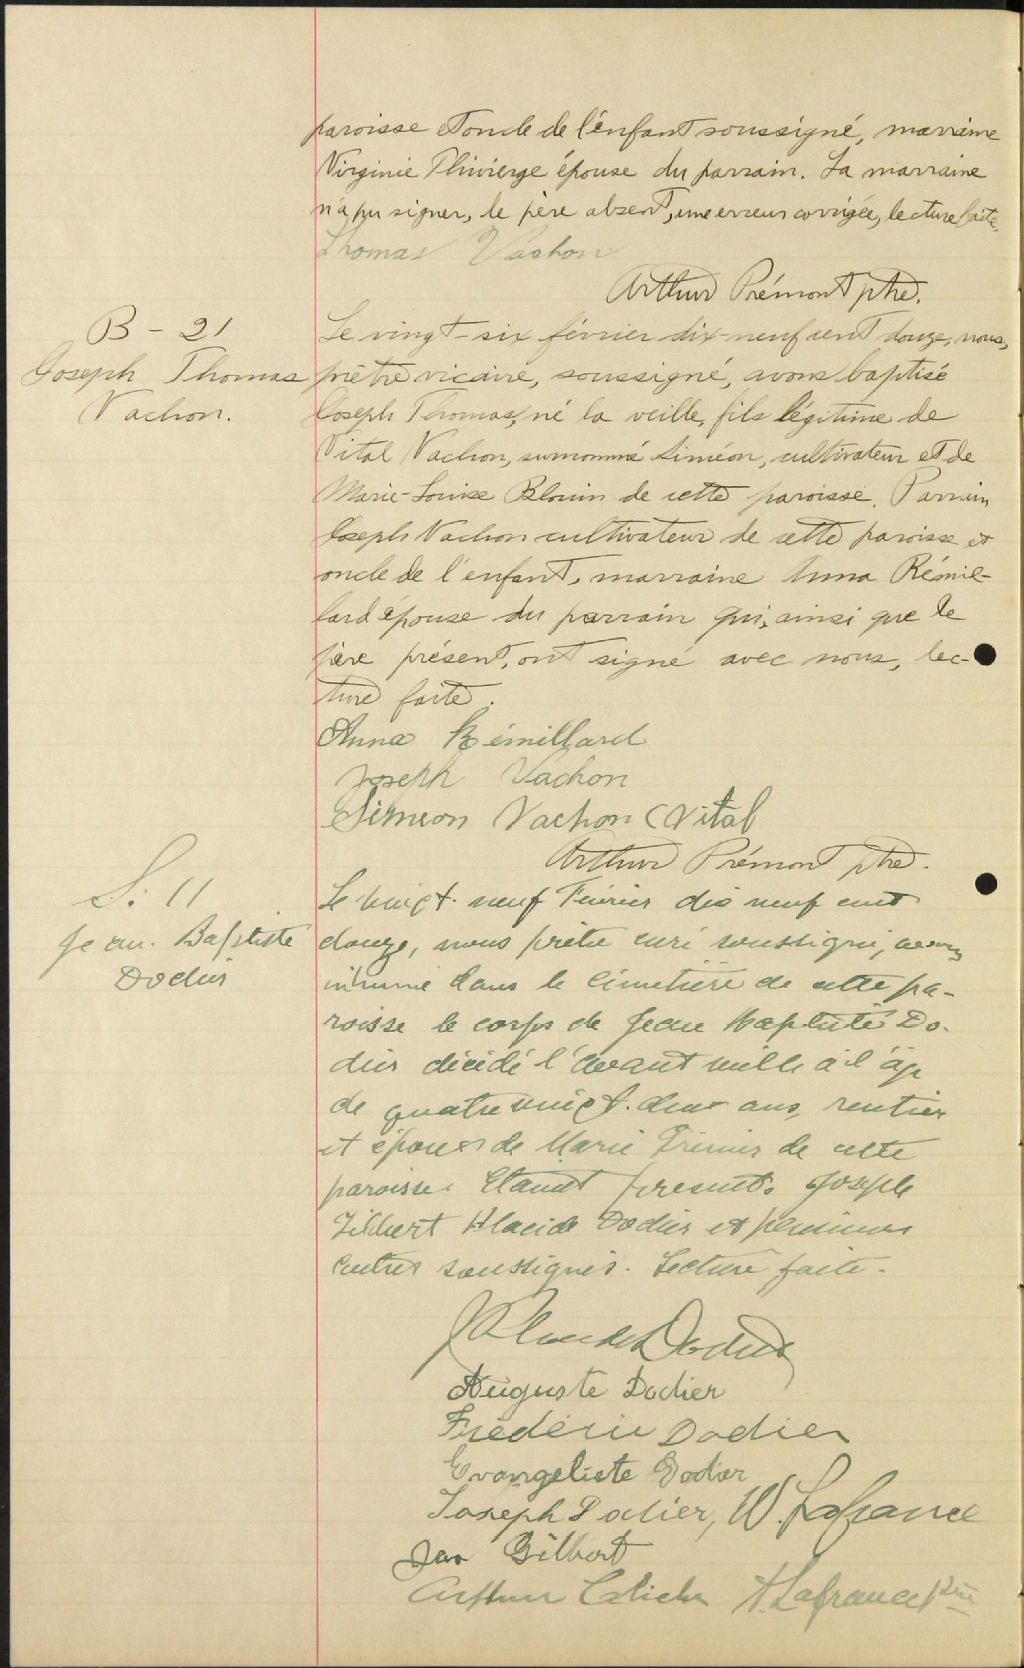 paroisse et oncle de l'enfant soussigné, marraine
Virginie Thivierge épouse du parrain. La marraine
n'a pu signer, le père absent, une erreur corrigée, lecture faite.
Thomas Vachon
Arthur Prémont ptre.
B - 21
Joseph Thomas
Vachon.
Le vingt-six février dix-neuf cent douze, nous,
prêtre vicaire, soussigné, avons baptisé
Joseph Thomas, né la veille, fils légitime de
Vital Vachon, surnommé Siméon, cultivateur et de
Marie-Louise Blouin de cette paroisse. Parrain
Joseph Vachon cultivateur de cette paroisse et
oncle de l'enfant, marraine Anna Rémil-
lard épouse du parrain qui, ainsi que le
père présent, ont signé avec nous, lec-
ture faite.
Anna Rémillard
Joseph Vachon
Siméon Vachon (Vital
Arthur Prémont ptre.
S. 11
Jean-Baptiste
Dodier
Le vingt-neuf Février dix neuf cent
douze, nous prêtre curé soussigné, avons
inhumé dans le Cimetière de cette pa-
roisse le corps de Jean Baptiste Do-
dier décédé l'avant veille à l'âge
de quatre vingt-deux ans, rentier
et époux de Marie de cette
paroisse. Etaient presents Joseph
Gilbert Placide Dodier et plusieurs
autres soussignés. Lecture faite.
J Placide Dodier
Auguste Dodier
Frédéric Dodier
Evangeliste Dodier
Joseph Dodier, W. Lafrance
Jos Gilbert
Arthur Cliche A. Lafrance Ptre